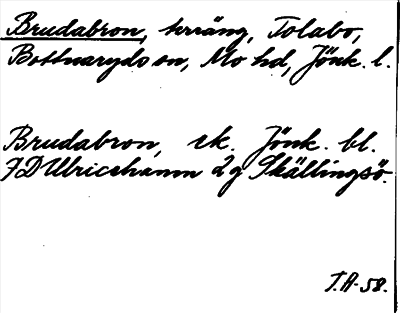 Brudabron, terräng, Tolabo,
Bottnaryds sn, Mo hd, Jönk. l.
Brudabron, ek. Jönk. bl.
7D Ulricehamn 2g Skällingsö.
T.A. 58.